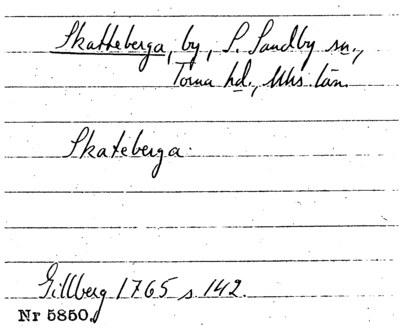 Skatteberga, by, S. Sandby sn.,
Torna hd., Mhs. län.
Skateberga.
Gillberg 1765 s. 142.
Nr 5850.